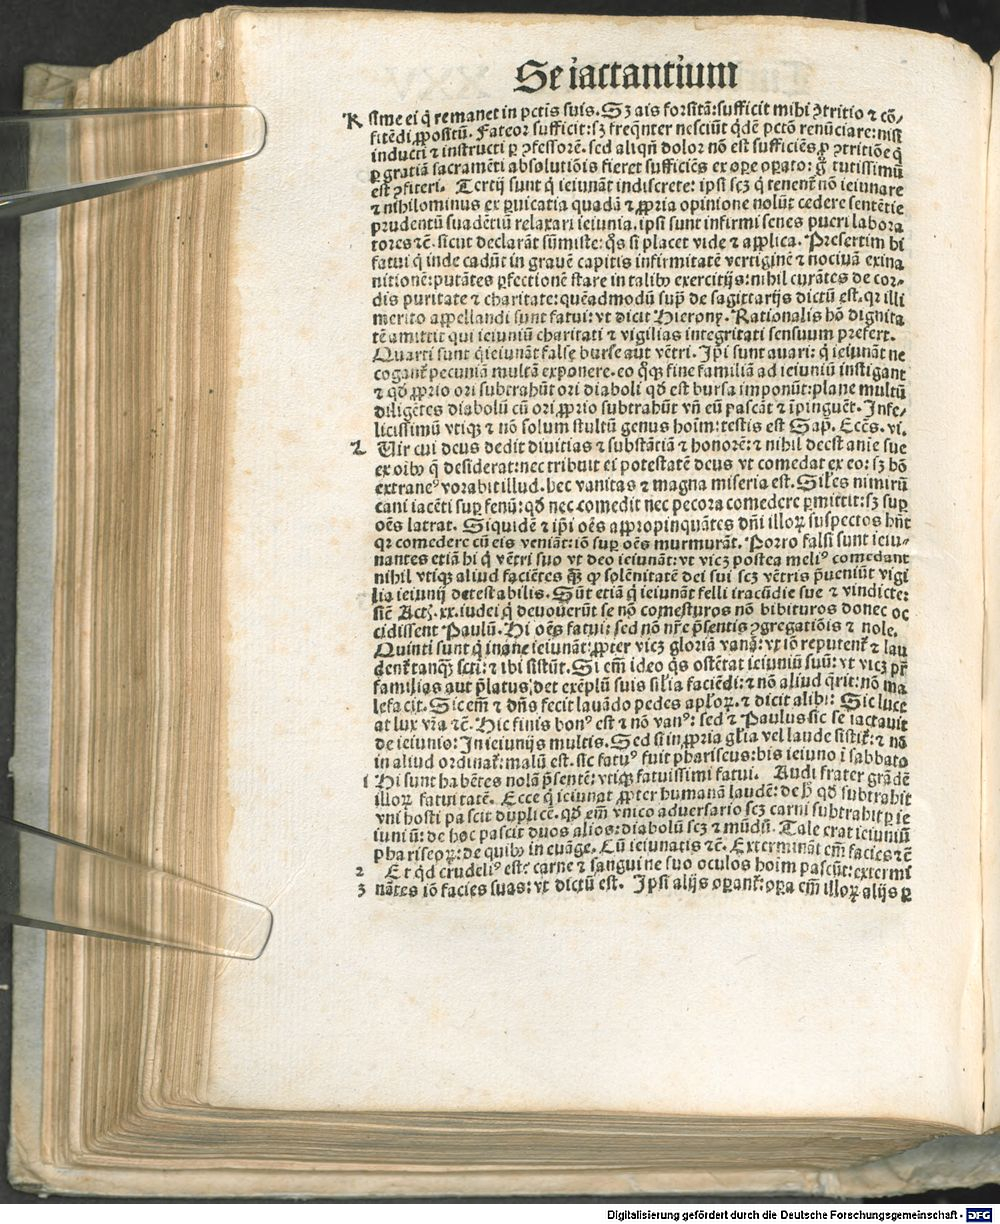 Se iactantium
K ſſime ei q̄ remanet in pctis ſuis. Sꝫ ais forſitā: ſufficit mihi ꝯtritio ⁊ cō-
fitēdi ꝓpoſitū. Fateor ſufficit: ſꝫ freq̄nter neſciūt q̄dē pctō renūciare: niſi
inducti ⁊ inſtructi ꝑ ꝯfeſſorē. ſed aliqn̄ dolor nō eſt ſufficiēs ꝓ ꝯtritiōe q̄
ꝑ gratiā ſacramēti abſolutiōis fieret ſufficiēs ex oꝑe oꝑato: g̊ tutiſſimū
eſt ꝯfiteri. Tertij ſunt q̄ ieiunāt indiſcrete: ipſi ſcꝫ q̄ tenent̄ nō ieiunare
⁊ nihilominus ex ꝑuicatia quadā ⁊ ꝓpria opinione nolūt cedere ſentētie
prudentū ſuadētiū relaxari ieiunia. ipſi ſunt infirmi ſenes pueri labora
tores ⁊c̄. ſicut declarāt ſūmiſte: q̄s ſi placet vide ⁊ applica. Preſertim hi
fatui q̄ inde cadūt in grauē capitis infirmitatē vertiginē ⁊ nociuā exina
nitionē: putātes ꝑfectionē ſtare in talibꝰ exercitijs: nihil curātes de cor-
dis puritate ⁊ charitate: quēadmodū ſupͣ de ſagittarijs dictū eſt. qꝛ illi
merito appellandi ſunt fatui: vt dicit Hieronꝫ. Rationalis hō dignita
tē amittit qui ieiuniū charitati ⁊ vigilias integritati ſenſuum prefert.
Quarti ſunt q̄ ieiunāt falſe burſe aut vētri. Ip̄i ſunt auari: q̄ ieiunāt ne
cogant̄ pecuniā multā exponere. eo q̄ꝗ ſine familiā ad ieiuniū inſtigant
⁊ qd̄ ꝓprio ori ſubtrahūt ori diaboli qd̄ eſt burſa imponūt: plane multū
diligētes diabolū cū ori ꝓprio ſubtrahūt vn̄ eū paſcāt ⁊ īpinguēt. Infe-
liciſſimū vtiqꝫ ⁊ nō ſolum ſtultū genus hoīm: teſtis eſt Sap. Ecc̄s. vi.
L Uir cui deus dedit diuitias ⁊ ſubſtātiā ⁊ honorē: ⁊ nihil deeſt anīe ſue
ex oībꝰ q̄ deſiderat: nec tribuit ei poteſtatē deus vt comedat ex eo: ſꝫ hō
extraneꝰ vorabit illud. hec vanitas ⁊ magna miſeria eſt. Sil̄es nimirū
cani iacēti ſuꝑ fenū: qd̄ nec comedit nec pecora comedere ꝑmittit: ſꝫ ſuꝑ
oēs latrat. Siquidē ⁊ ip̄i oēs appropinquātes dn̄i illoꝝ ſuſpectos hn̄t
qꝛ comedere cū eis veniāt: iō ſuꝑ oēs murmurāt. Porro falſi ſunt ieiu-
nantes etiā hi q̄ vētri ſuo vt deo ieiunāt: vt vicꝫ poſtea meliꝰ comedant
nihil vtiqꝫ aliud faciētes q̄ꝫ ꝙ ſolēnitatē dei ſui ſcꝫ vētris p̄ueniūt vigi
lia ieiunij deteſtabilis. Sūt etiā q̄ ieiunāt felli iracūdie ſue ⁊ vindicte:
ſic̄ Actꝫ. xx. iudei q̄ deuouerūt ſe nō comeſturos nō bibituros donec oc
cidiſſent Paulū. Hi oēs fatui: ſed nō nr̄e p̄ſentis ꝯgregatiōis ⁊ nole.
Quinti ſunt q̄ inane ieiunāt: ꝓpter vicꝫ gloriā vanā: vt iō reputent̄ ⁊ lau
dent̄ tanqꝫ ſcti: ⁊ ibi ſiſtūt. Si em̄ ideo q̄s oſtētat ieiuniū ſuū: vt vicꝫ pr̄
familias aut p̄latus, det exēplū ſuis ſil̄ia faciēdi: ⁊ nō aliud q̄rit: nō ma
le facit. Sic em̄ ⁊ dn̄s fecit lauādo pedes apl̄oꝝ. ⁊ dicit alibi: Sic luce
at lux vr̄a ⁊c̄. Hic finis bonꝰ eſt ⁊ nō vanꝰ: ſed ⁊ Paulus ſic ſe iactauit
de ieiunio: In ieiunijs multis. Sed ſi in ꝓpria gl̄ia vel laude ſiſtit̄: ⁊ nō
in aliud ordinat̄: malū eſt. ſic fatuꝰ fuit phariſeus: bis ieiuno ī ſabbato
1 Hi ſunt habētes nolā p̄ſentē: vtiqꝫ fatuiſſimi fatui. Audi frater grādē
illoꝝ fatuitatē. Ecce q̄ ieiunat ꝓpter humanā laudē: de h̄ qd̄ ſubtrahit
vni hoſti paſcit duplicē. qd̄ em̄ vnico aduerſario ſcꝫ carni ſubtrahit ꝑ ie
iuniū: de hoc paſcit duos alios: diabolū ſcꝫ ⁊ mūdū. Tale erat ieiuniū
phariſeoꝝ: de quibꝰ in euāge. Cū ieiunatis ⁊c̄. Extermināt em̄ facies ⁊c̄
2 Et qd̄ crudeliꝰ eſt: carne ⁊ ſanguine ſuo oculos hoīm paſcūt: extermi
3 nātes iō facies ſuas: vt dictū eſt. Ipſi alijs oꝑant̄: oꝑa em̄ illoꝝ alijs ꝑ
Digitalisierung gefördert durch die Deutsche Forschungsgemeinschaft - DFG